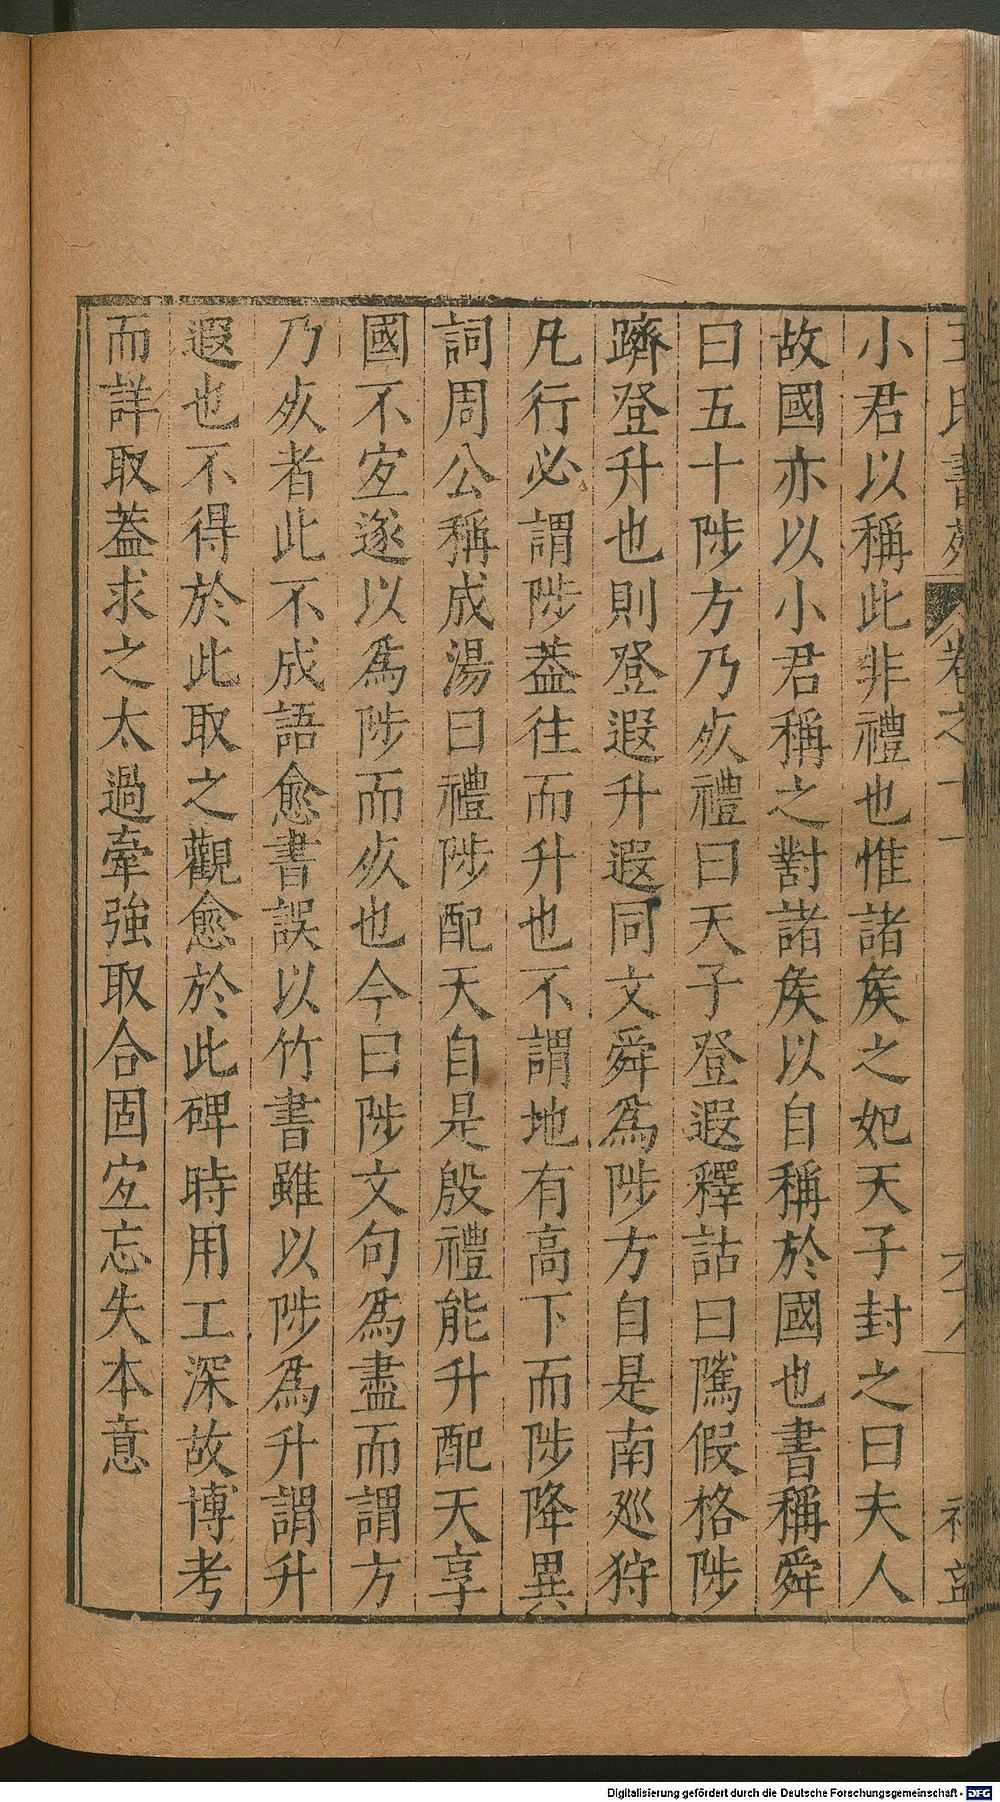 王氏書苑 卷之十一
小君以稱此非禮也惟諸矦之妃天子封之曰夫人
故國亦以小君稱之對諸矦以自稱於國也書稱舜
曰五十陟方乃㱙禮曰天子登遐釋詁曰隲假格陟
躋登升也則登遐升遐同文舜爲陟方自是南廵狩
凡行必謂陟葢往而升也不謂地有高下而陟降異
詞周公稱成湯曰禮陟配天自是殷禮能升配天享
國不宐遂以爲陟而㱙也今曰陟文句爲盡而謂方
乃㱙者此不成語愈書誤以竹書雖以陟爲升謂升
遐也不得於此取之觀愈於此碑時用工深故博考
而詳取葢求之太過牽強取合固宐忘失本意
Digitalisierung gefördert durch die Deutsche Forschungsgemeinschaft - DFG